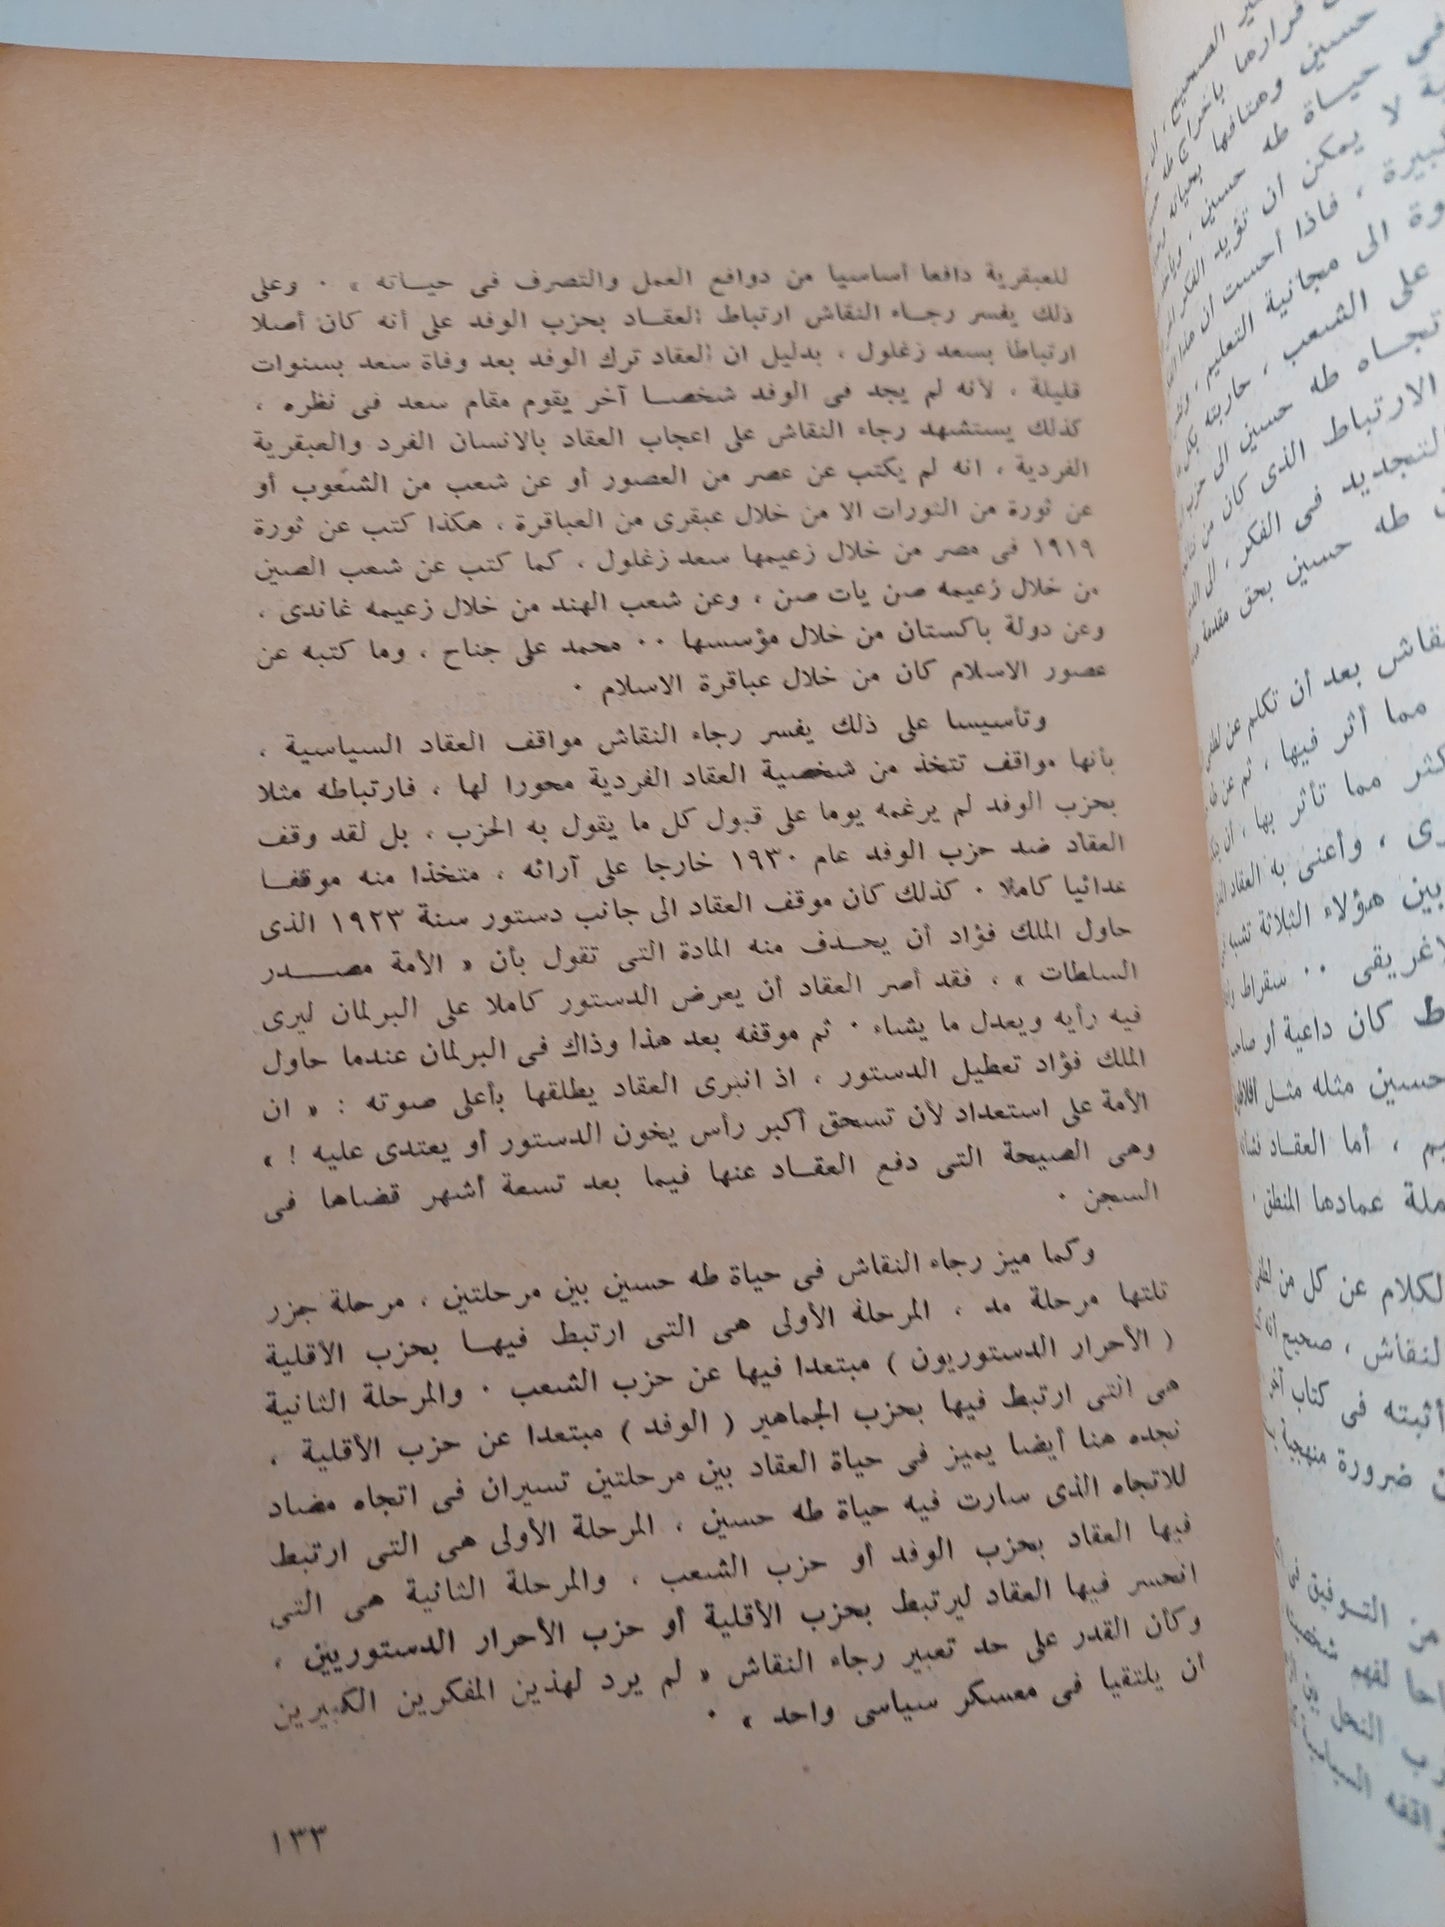 للعبقرية دافعا أساسيا من دوافع العمل والتصرف فى حيـاته » ٠ وعلى
ذلك يفسر رجـاء النقاش ارتباط العقـاد بحزب الوفد على أنه كان أصلا
ارتباطا بسعد زغلول ، بدليل ان العقاد ترك الوفد بعد وفاة سعد بسنوات
قليلة ، لأنه لم يجد فى الوفد شخصـا آخر يقوم مقام سعد فى نظره ،
كذلك يستشهد رجاء النقاش على اعجاب العقاد بالانسان الفرد والعبقرية
الفردية ، انه لم يكتب عن عصر من العصور أو عن شعب من الشعوب أو
عن ثورة من الثورات الا من خلال عبقرى من العباقرة ، هكذا كتب عن ثورة
١٩١٩ فى مصر من خلال زعيمها سعد زغلول ، كما كتب عن شعب الصين
من خلال زعيمه صن يات صن ، وعن شعب الهند من خلال زعيمه غاندى ،
وعن دولة باكستان من خلال مؤسسها ٠٠ محمد على جناح ، وما كتبه عن
عصور الاسلام كان من خلال عباقرة الاسلام ٠
وتأسيسا على ذلك يفسر رجاء النقاش مواقف العقاد السياسية ،
بأنها مواقف تتخذ من شخصية العقاد الفردية محورا لها ، فارتباطه مثلا
بحزب الوفد لم يرغمه يوما على قبول كل ما يقول به الحزب ، بل لقد وقف
العقاد ضد حزب الوفد عام ١٩٣٠ خارجا على آرائه ، متخذا منه موقفـا
عدائيا كاملا ٠ كذلك كان موقف العقاد الى جانب دستور سنة ١٩٢٣ الذى
حاول الملك فؤاد أن يحـذف منه المادة التى تقول بأن « الأمة مصـــدر
السلطات » ، فقد أصر العقاد أن يعرض الدستور كاملا على البرلمان ليرى
فيه رأيه ويعدل ما يشاء ٠ ثم موقفه بعد هذا وذاك فى البرلمان عندما حاول
الملك فؤاد تعطيل الدستور ، اذ انبرى العقاد يطلقها بأعلى صوته : « ان
الأمة على استعداد لأن تسحق أكبر رأس يخون الدستور أو يعتدى عليه ! »
وهى الصيحة التى دفع العقـاد عنها فيما بعد تسعة أشهر قضاها فى
السجن ٠
وكما ميز رجاء النقاش فى حياة طه حسين بين مرحلتين ، مرحلة جزر
تلتها مرحلة مد ، المرحلة الأولى هى التى ارتبط فيهـا بحزب الأقلية
( الأحرار الدستوريون ) مبتعدا فيها عن حزب الشعب ٠ والمرحلة الثانية
هى التى ارتبط فيها بحزب الجماهير ( الوفد ) مبتعدا عن حزب الأقلية ،
نجده هنا أيضا يميز فى حياة العقاد بين مرحلتين تسيران فى اتجاه مضاد
للاتجاه الذى سارت فيه حياة طه حسين ، المرحلة الأولى هى التى ارتبط
فيها العقاد بحزب الوفد أو حزب الشعب ، والمرحلة الثانية هى التى
انحسر فيها العقاد ليرتبط بحزب الأقلية أو حزب الأحرار الدستوريين ،
وكأن القدر على حد تعبير رجاء النقاش « لم يرد لهذين المفكرين الكبيرين
أن يلتقيا فى معسكر سياسى واحد » ٠
١٣٣
حسين وهتافها بحياته
فى حياة طه حسين ،
لا يمكن أن تؤيد الفكر
، فاذا أحست ان هذا
الى مجانية التعليم ،
على الشعب ، حاربته بكل
تجـاه طه حسين الى حزب
الارتباط الذى كان من
التجديد فى الفكر ، الى
طه حسين بحق مقدمة
بعد أن تكلم عن لطفى
مما أثر فيها ، ثم عن
مما تأثر بها ،
، وأعنى به العقاد
بين هؤلاء الثلاثة
٠٠ سقراط
كان داعية أو
حسين مثله مثل
، أما العقـاد
عمادها المنطق ٠
الكلام عن كل من
النقاش ، صحيح
أثبته فى كتاب
ضرورة منهجية
من التـوفيق فى
لفهم